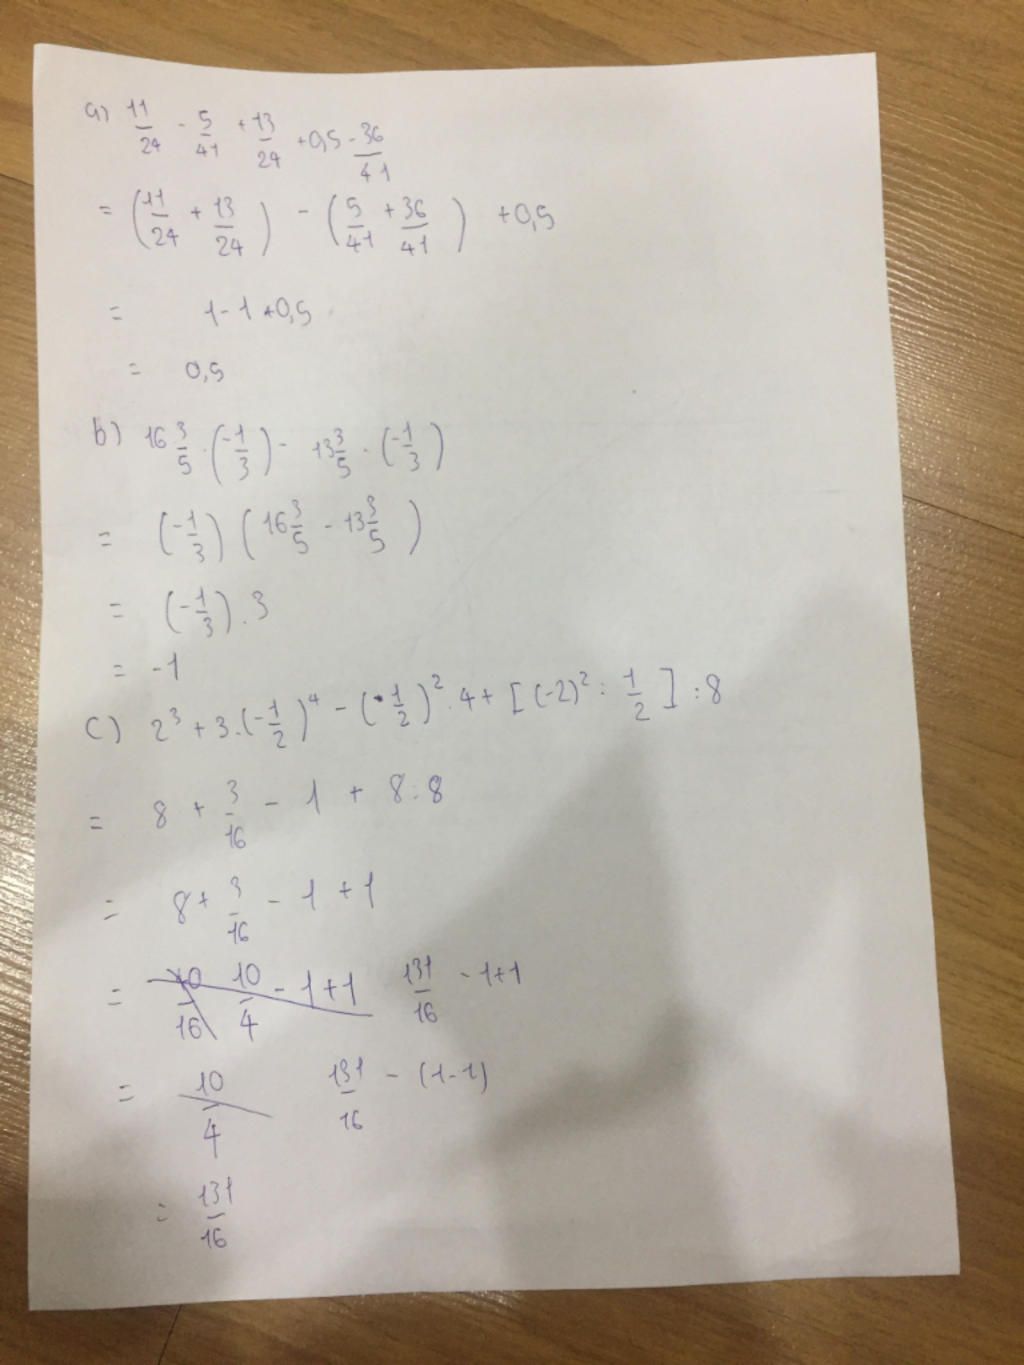 a) 11/24 - 5/41 + 13/24 + 0,5 - 36/41
= (11/24 + 13/24) - (5/41 + 36/41) + 0,5
= 1 - 1 + 0,5
= 0,5
b) 16 3/5 . (-1/3) - 13 3/5 . (-1/3)
= (-1/3) (16 3/5 - 13 3/5)
= (-1/3) . 3
= -1
c) 2³ + 3. (-1/2)⁴ - (-1/2)² . 4 + [(-2)² : 1/2] : 8
= 8 + 3/16 - 1 + 8 : 8
= 8 + 3/16 - 1 + 1
= 10/16 10/4 - 1 + 1 131/16 - 1 + 1
= 10/4 131/16 - (1 - 1)
= 131/16